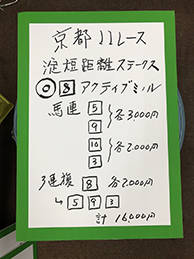 京都11レース
淀短距離ステークス
◎8 アクティブミノル
馬連 5
9 各3,000円
10
3 各2,000円
3連複 8 各2,000円
↳ 5 9 3
計 16,000円